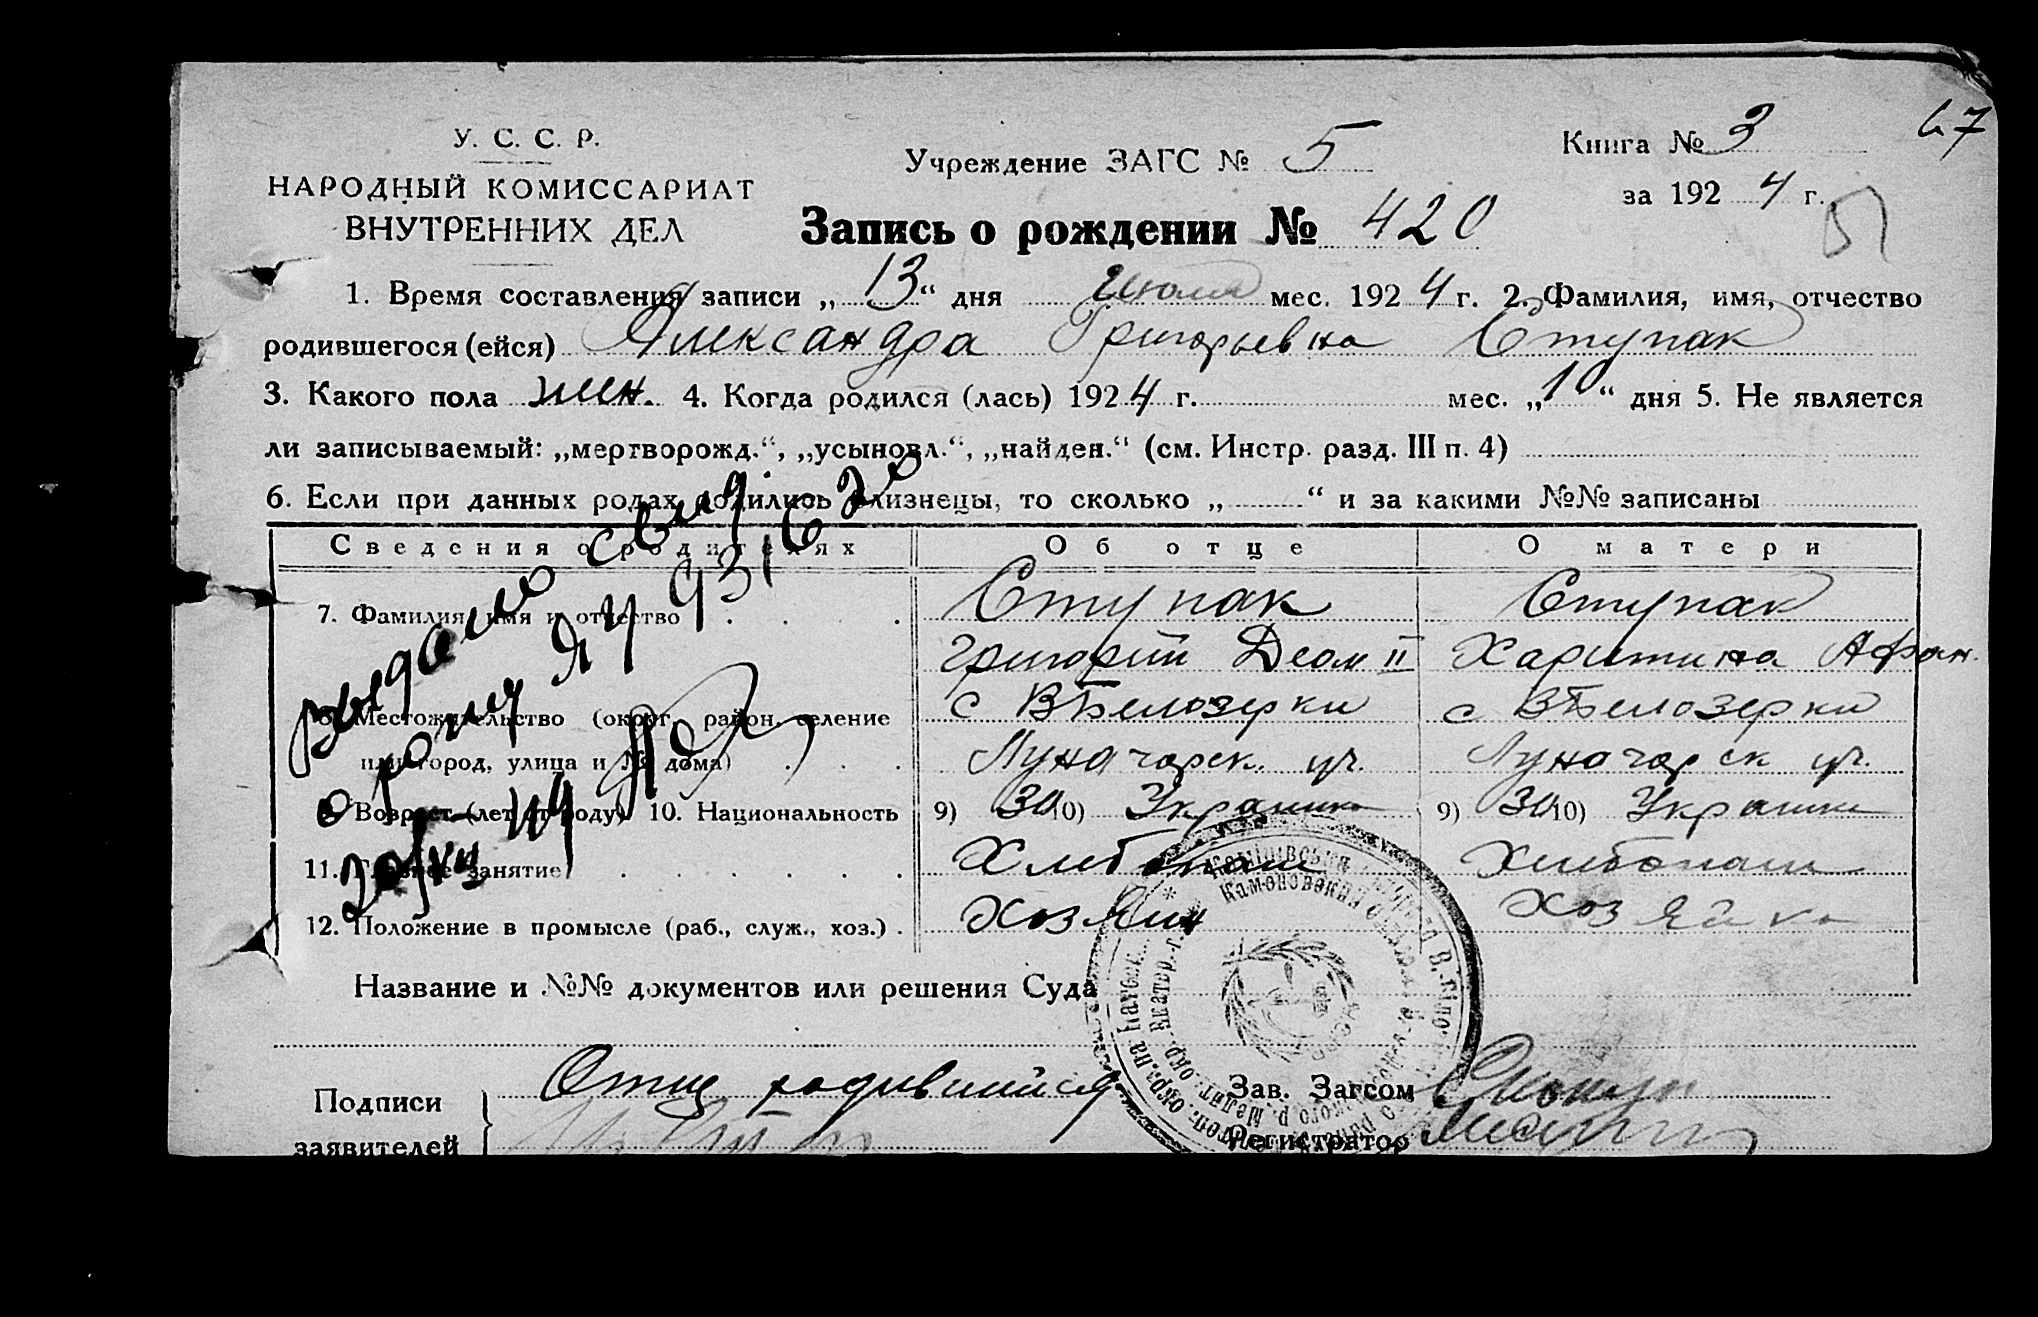 У. С. С. Р.
НАРОДНЫЙ КОМИССАРИАТ
ВНУТРЕННИХ ДЕЛ
Учреждение ЗАГС № 5
Книга № 3
за 192 4 г.
47
51
Запись о рождении № 420
1. Время составления записи „ 13 “ дня Июля мес. 192 4 г. 2. Фамилия, имя, отчество
родившегося (ейся) Александра Григорьевна Ступак
3. Какого пола жен. 4. Когда родился (лась) 192 4 г. мес. „ 10 “ дня 5. Не является
ли записываемый: „мертворожд.“, „усыновл.“, „найден.“ (см. Инстр. разд. III п. 4)
6. Если при данных родах родились близнецы, то сколько „ “ и за какими №№ записаны
Сведения о родителях Об отце О матери
7. Фамилия, имя и отчество Ступак Ступак
Григорий Харитина Афан.
8. Местожительство (округ, район, селение с ВБелозерки с ВБелозерки
или город, улица и № дома) Луначарск. ул. Луначарск ул.
9. Возраст (лет от роду) 10. Национальность 9) 30 10) 9) 30 10)
11. Главное занятие Хлебопаш
12. Положение в промысле (раб., служ., хоз.) Хозяин Хозяйка
Выдано свид.
о рожд ЯЧ 931620
Название и №№ документов или решения Суда
Подписи
заявителей
Отец родившийся
Зав. Загсом
Регистратор